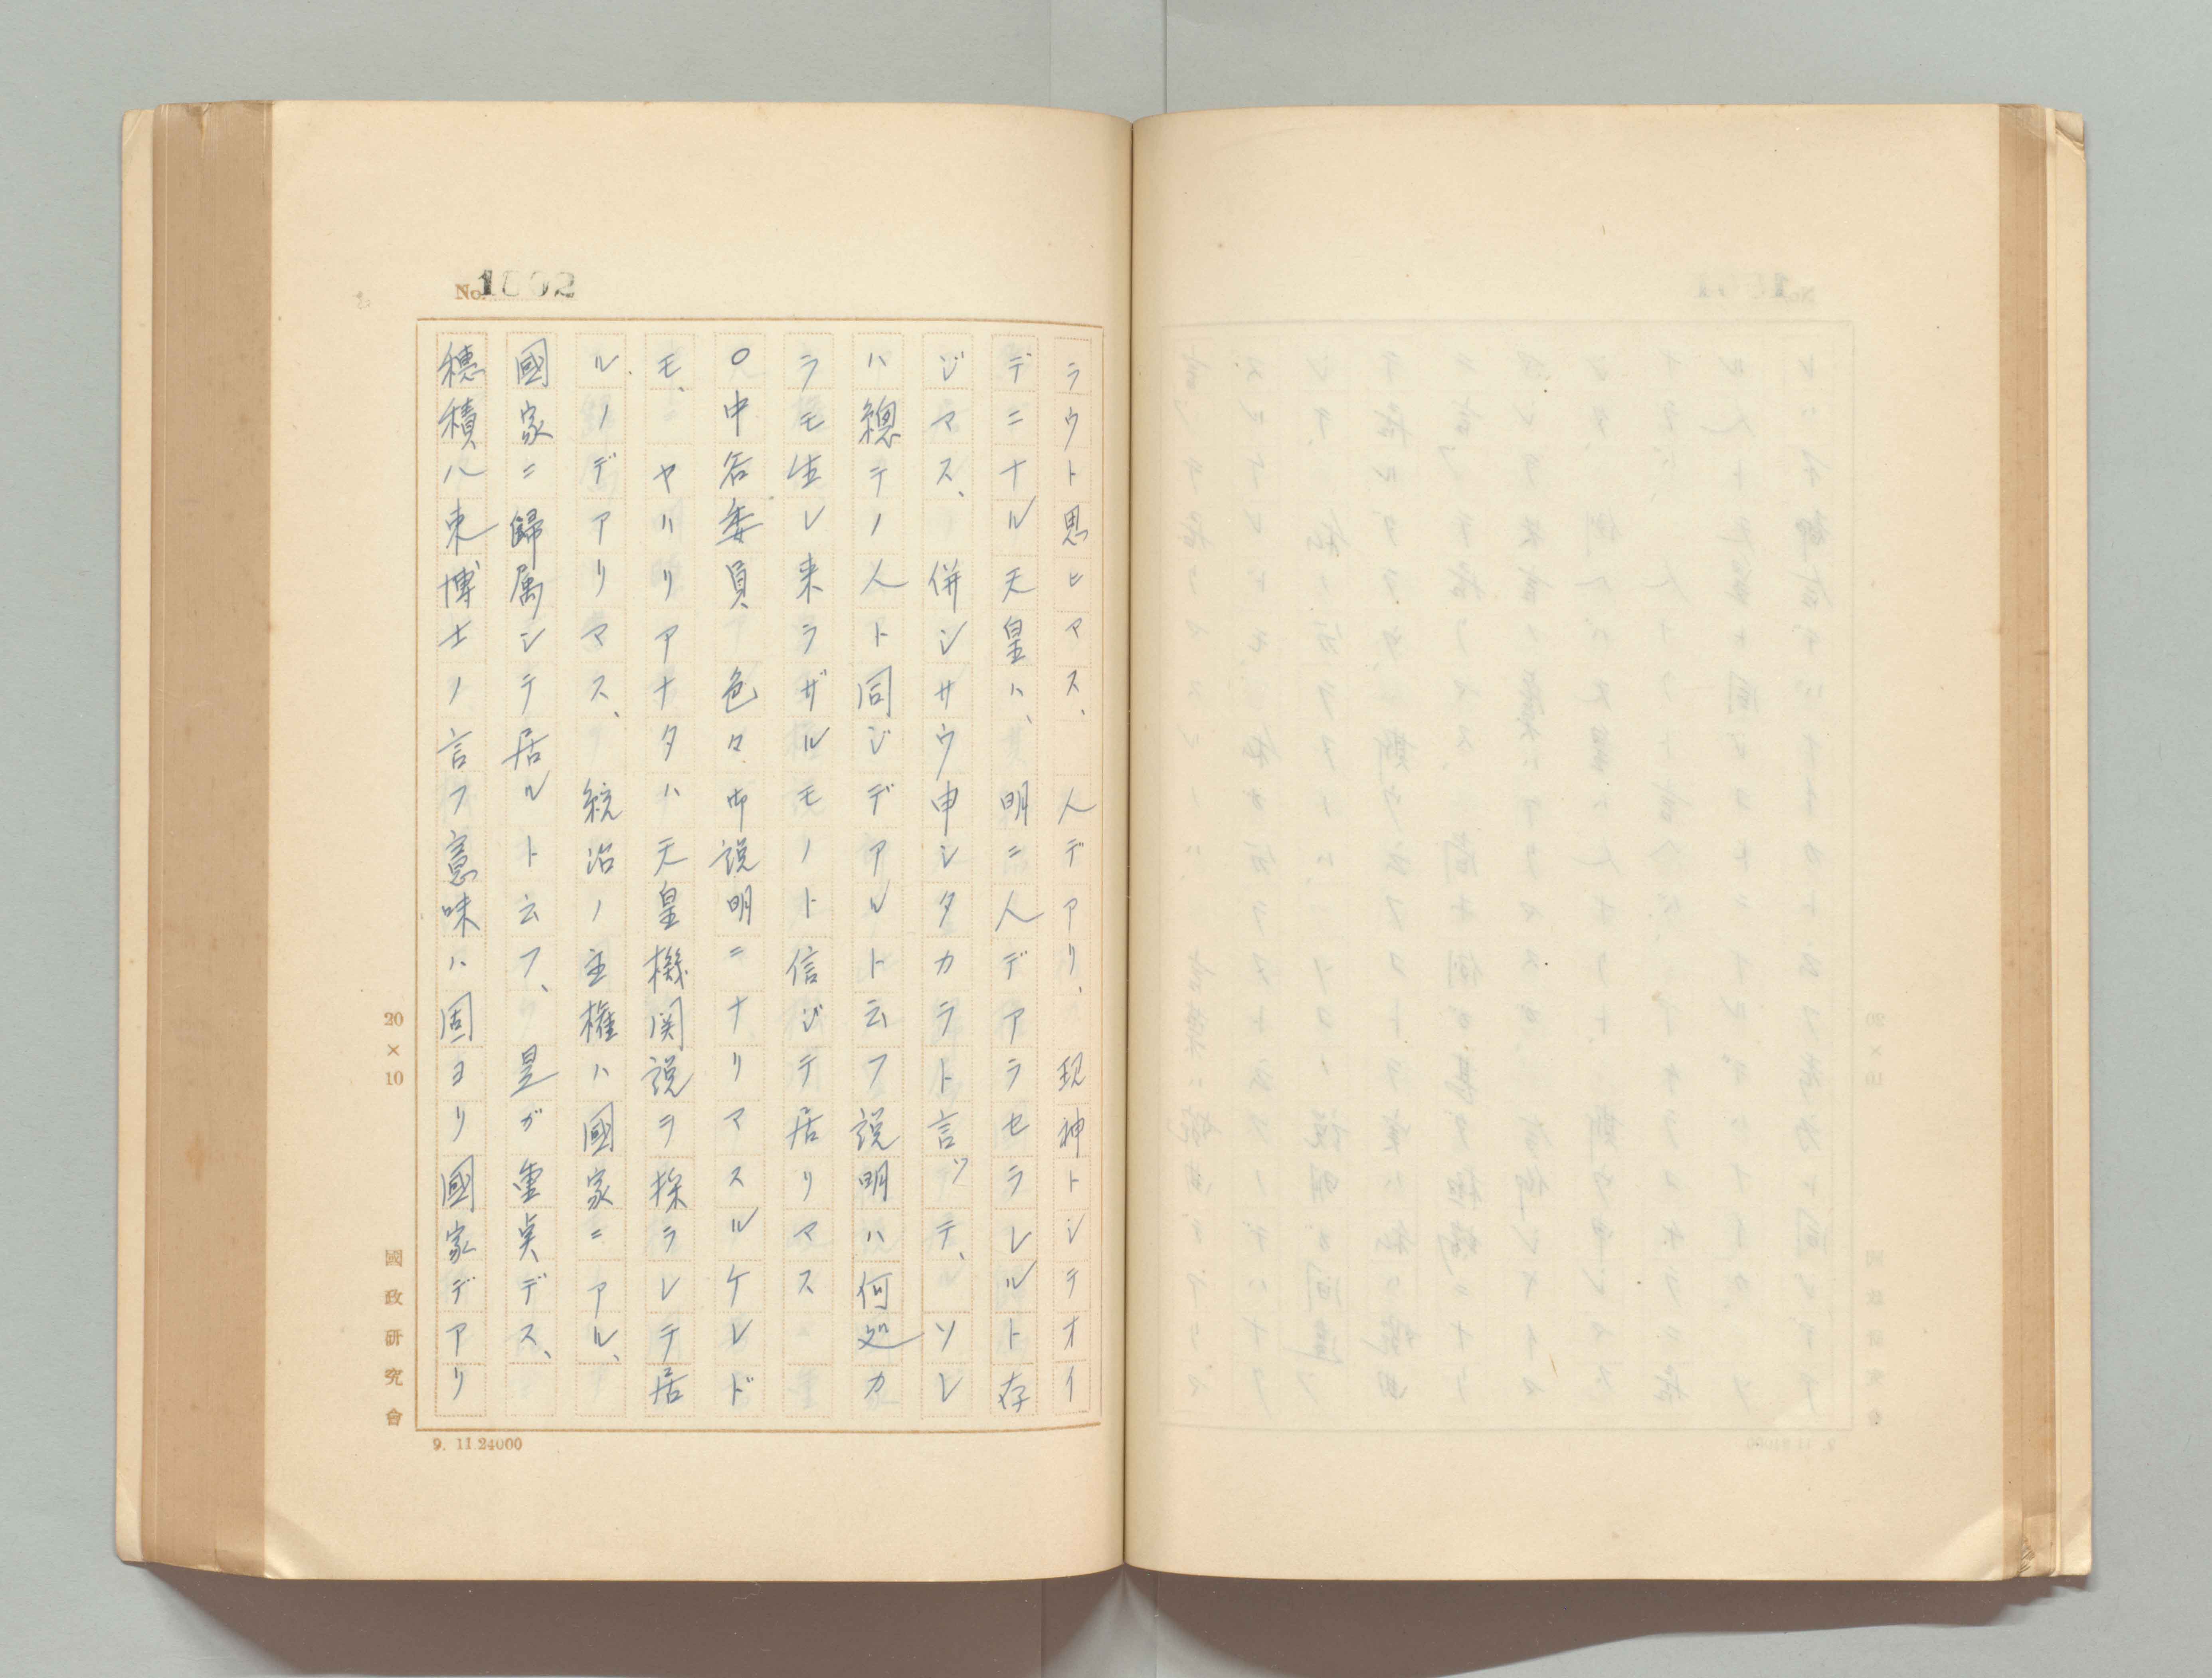 No. 1802
ラウト思ヒマス、人デアリ、現神トシテオイ
デニナル天皇ハ、明ニ人デアラセラレルト存
ジマス、併シサウ申シタカラト言ッテ、ソレ
ハ總テノ人ト同ジデアルト云フ説明ハ何処カ
ラモ生レ来ラザルモノト信ジテ居リマス
○中谷委員 色々御説明ニナリマスルケレド
モ、ヤハリアナタハ天皇機関説ヲ採ラレテ居
ルノデアリマス、統治ノ主権ハ國家ニアル、
國家ニ歸属シテ居ルト云フ、是ガ重点デス、
穂積八束博士ノ言フ意味ハ固ヨリ國家デアリ
20×10
國政研究會
9. 11 24000